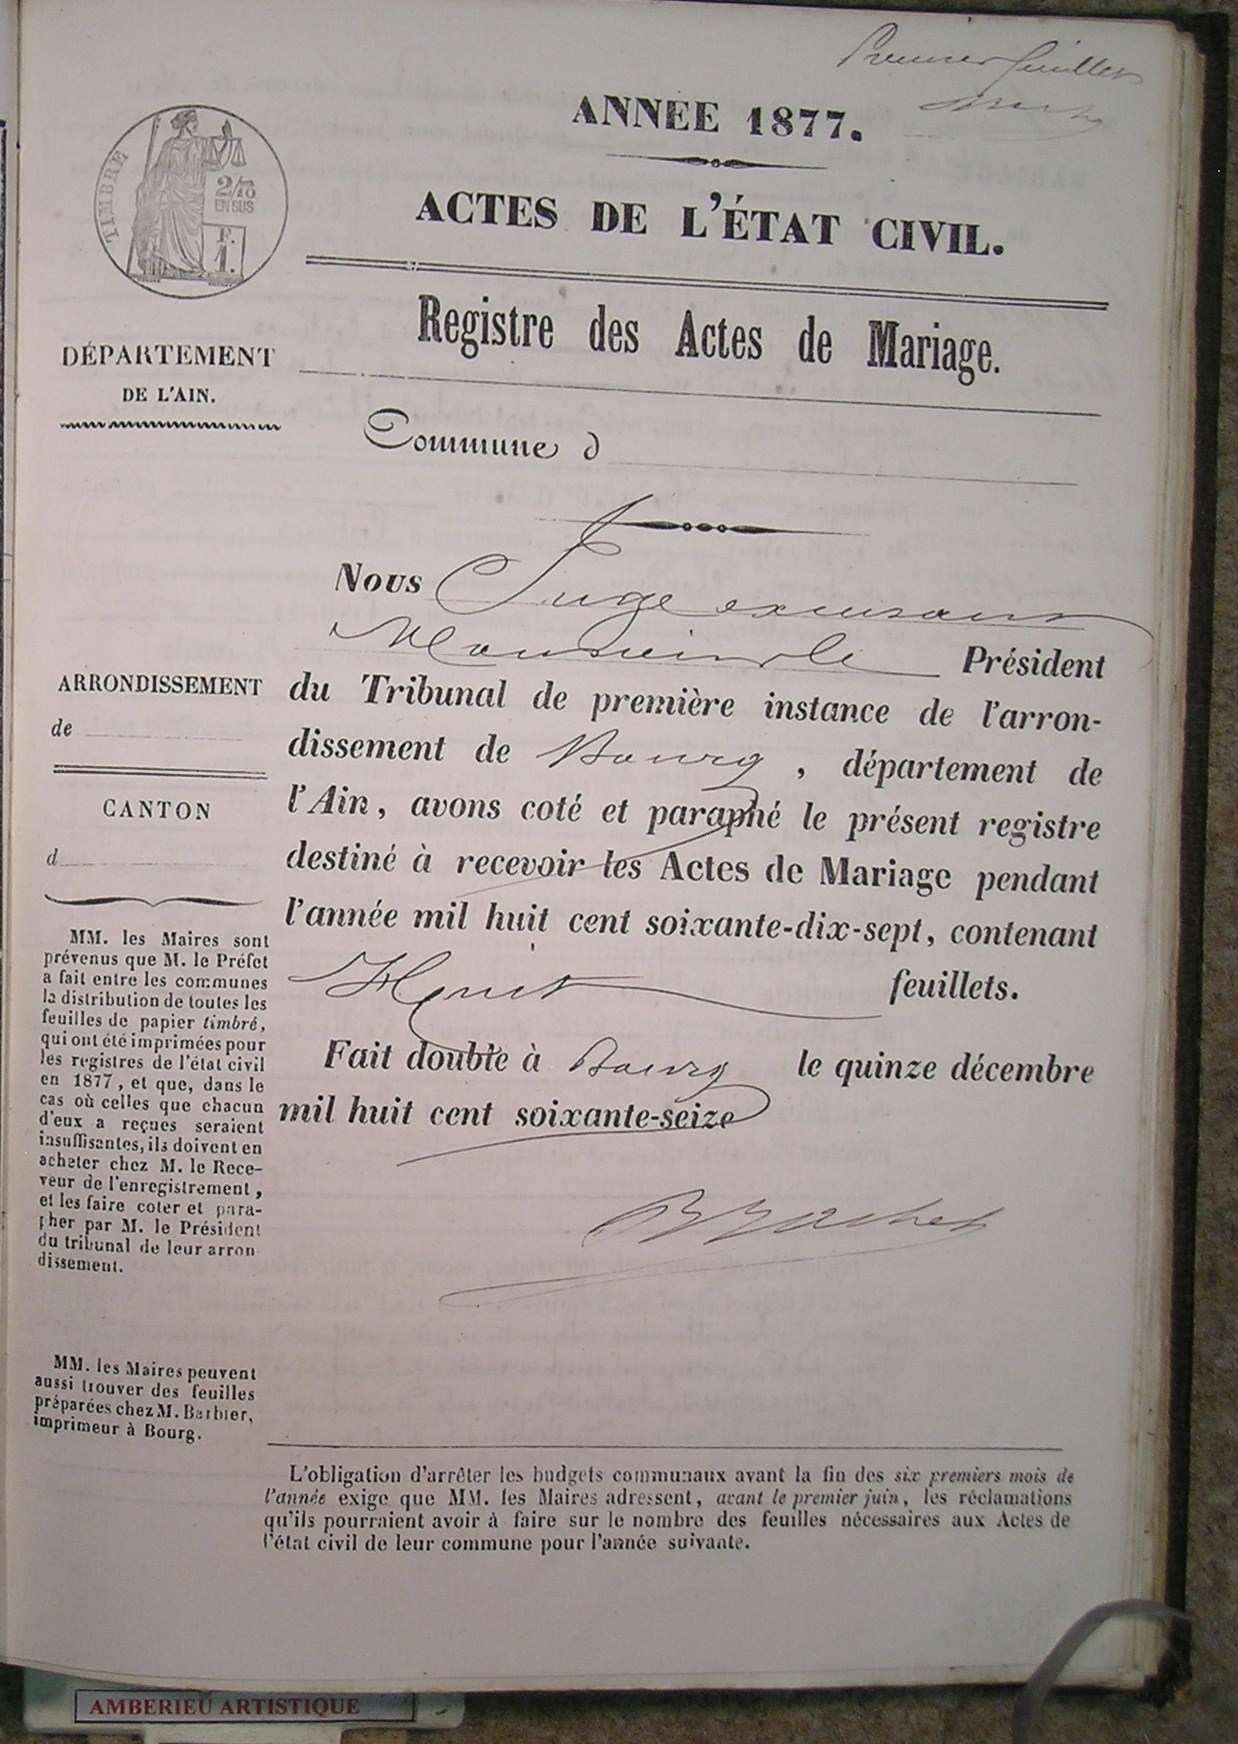 Premier feuillet
ANNÉE 1877.
ACTES DE L'ÉTAT CIVIL.
TIMBRE
2/10
EN SUS
F.
1.
Registre des Actes de Mariage.
DÉPARTEMENT
DE L'AIN.
Commune d
Nous Juge excusant
Monsieur le Président
ARRONDISSEMENT
de
du Tribunal de première instance de l'arron-
dissement de Bourg, département de
l'Ain, avons coté et paraphé le présent registre
destiné à recevoir les Actes de Mariage pendant
l'année mil huit cent soixante-dix-sept, contenant
Huit feuillets.
Fait double à Bourg le quinze décembre
mil huit cent soixante-seize
CANTON
d
MM. les Maires sont
prévenus que M. le Préfet
a fait entre les communes
la distribution de toutes les
feuilles de papier timbré,
qui ont été imprimées pour
les registres de l'état civil
en 1877, et que, dans le
cas où celles que chacun
d'eux a reçues seraient
insuffisantes, ils doivent en
acheter chez M. le Rece-
veur de l'enregistrement,
et les faire coter et para-
pher par M. le Président
du tribunal de leur arron
dissement.
MM. les Maires peuvent
aussi trouver des feuilles
préparées chez M. Barbier,
imprimeur à Bourg.
L'obligation d'arrêter les budgets communaux avant la fin des six premiers mois de
l'année exige que MM. les Maires adressent, avant le premier juin, les réclamations
qu'ils pourraient avoir à faire sur le nombre des feuilles nécessaires aux Actes de
l'état civil de leur commune pour l'année suivante.
AMBERIEU ARTISTIQUE